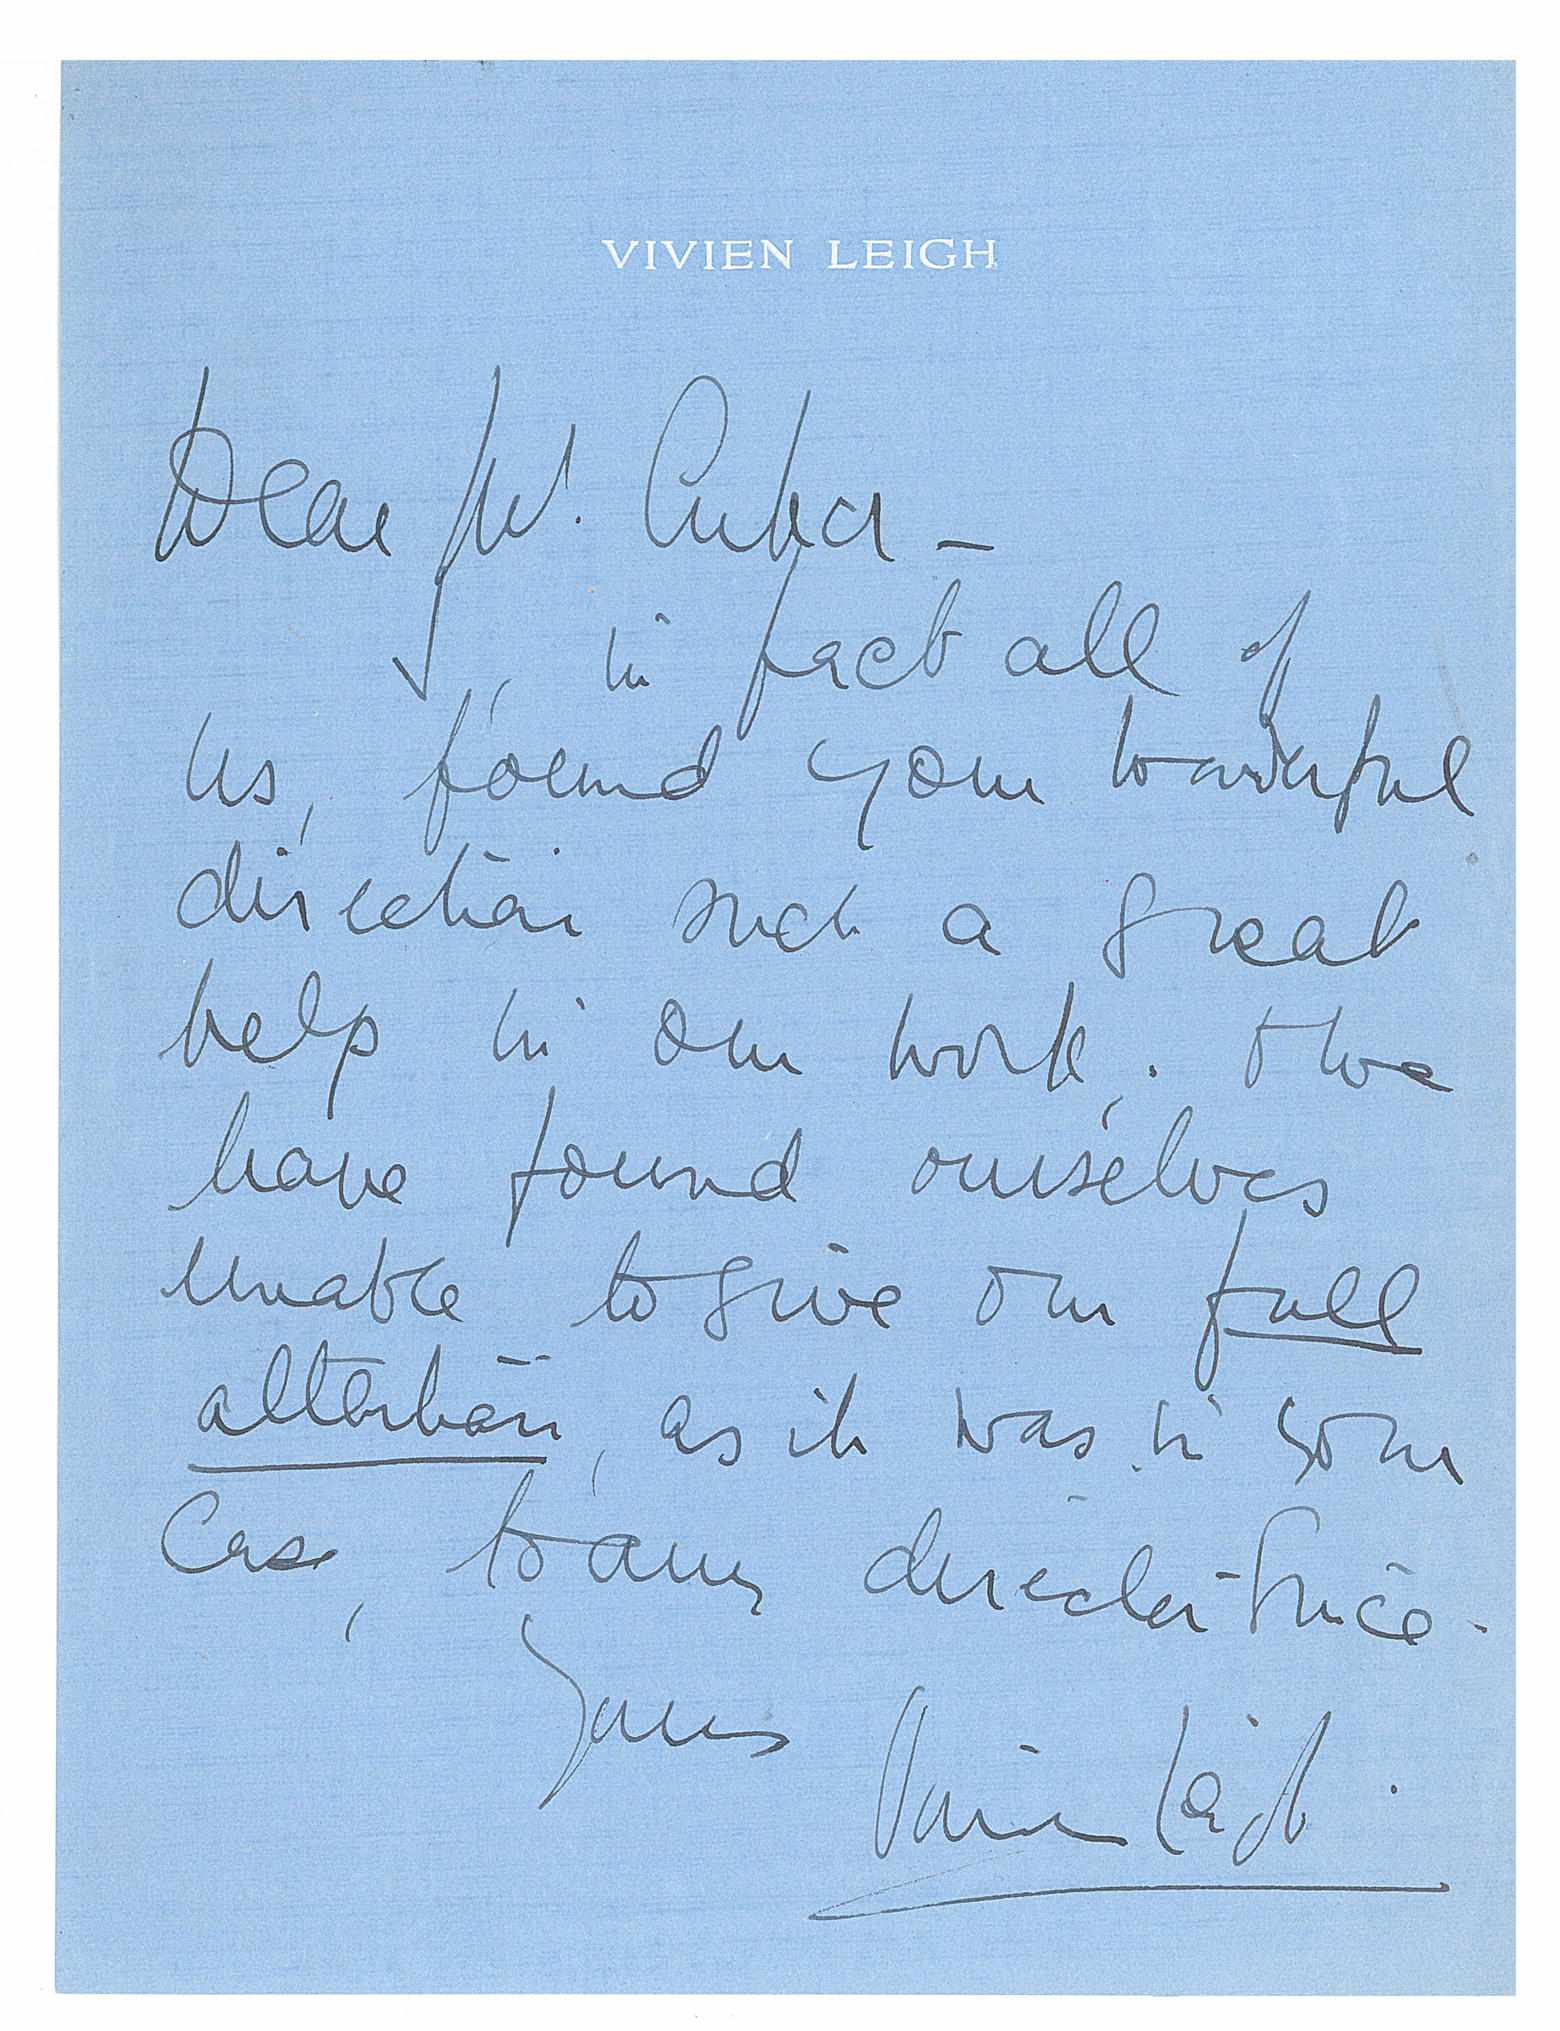 VIVIEN LEIGH
Dear Mr. Cukor –
I, in fact all of
us, found your wonderful
direction such a great
help in our work, & we
have found ourselves
unable to give our full
attention, as it was in your
case, to any director since.
Yours
Vivien Leigh.